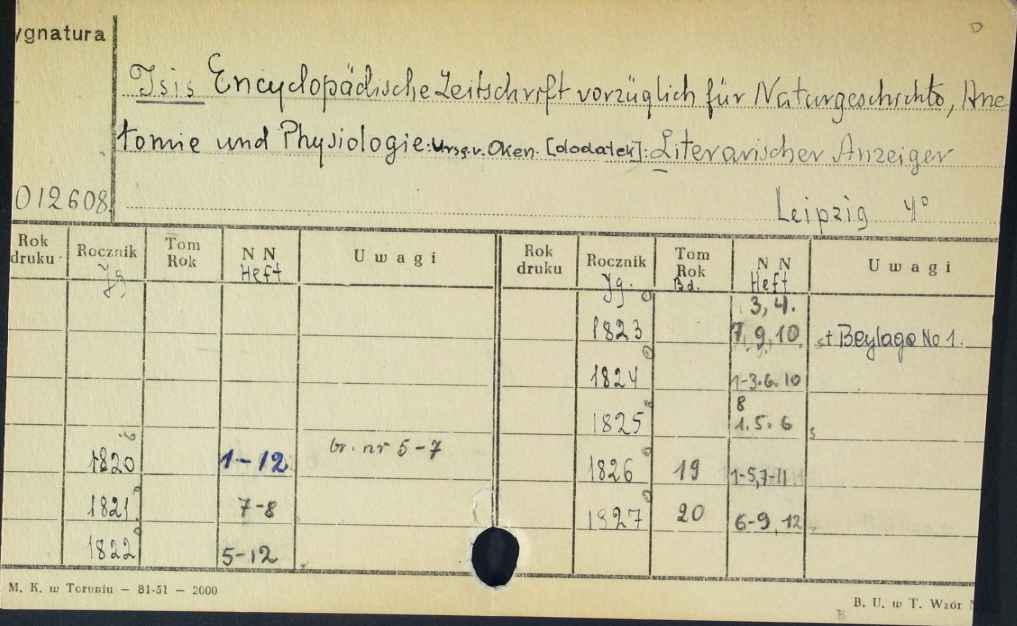 ygnatura
Isis Encyclopädische Zeitschrift vorzüglich für Naturgeschichte, Ana
tomie und Physiologie: Hrsg. v. Oken. [dodatek]: Literarischer Anzeiger
012608
Leipzig 4°
Rok druku Rocznik Jg. Tom Rok N N Heft Uwagi Rok druku Rocznik Jg. Tom Rok Bd. N N Heft Uwagi
1823 1, 3, 4. 7, 9, 10 + Beylage No 1.
1824 1-3. 6. 10
1825 8 1. 5. 6
1820 1-12 br. nr 5-7 1826 19 1-5, 7-11
1821 7-8 1827 20 6-9, 12
1822 5-12
M. K. w Toruniu — 81-51 — 2000
B. U. w T. Wzór